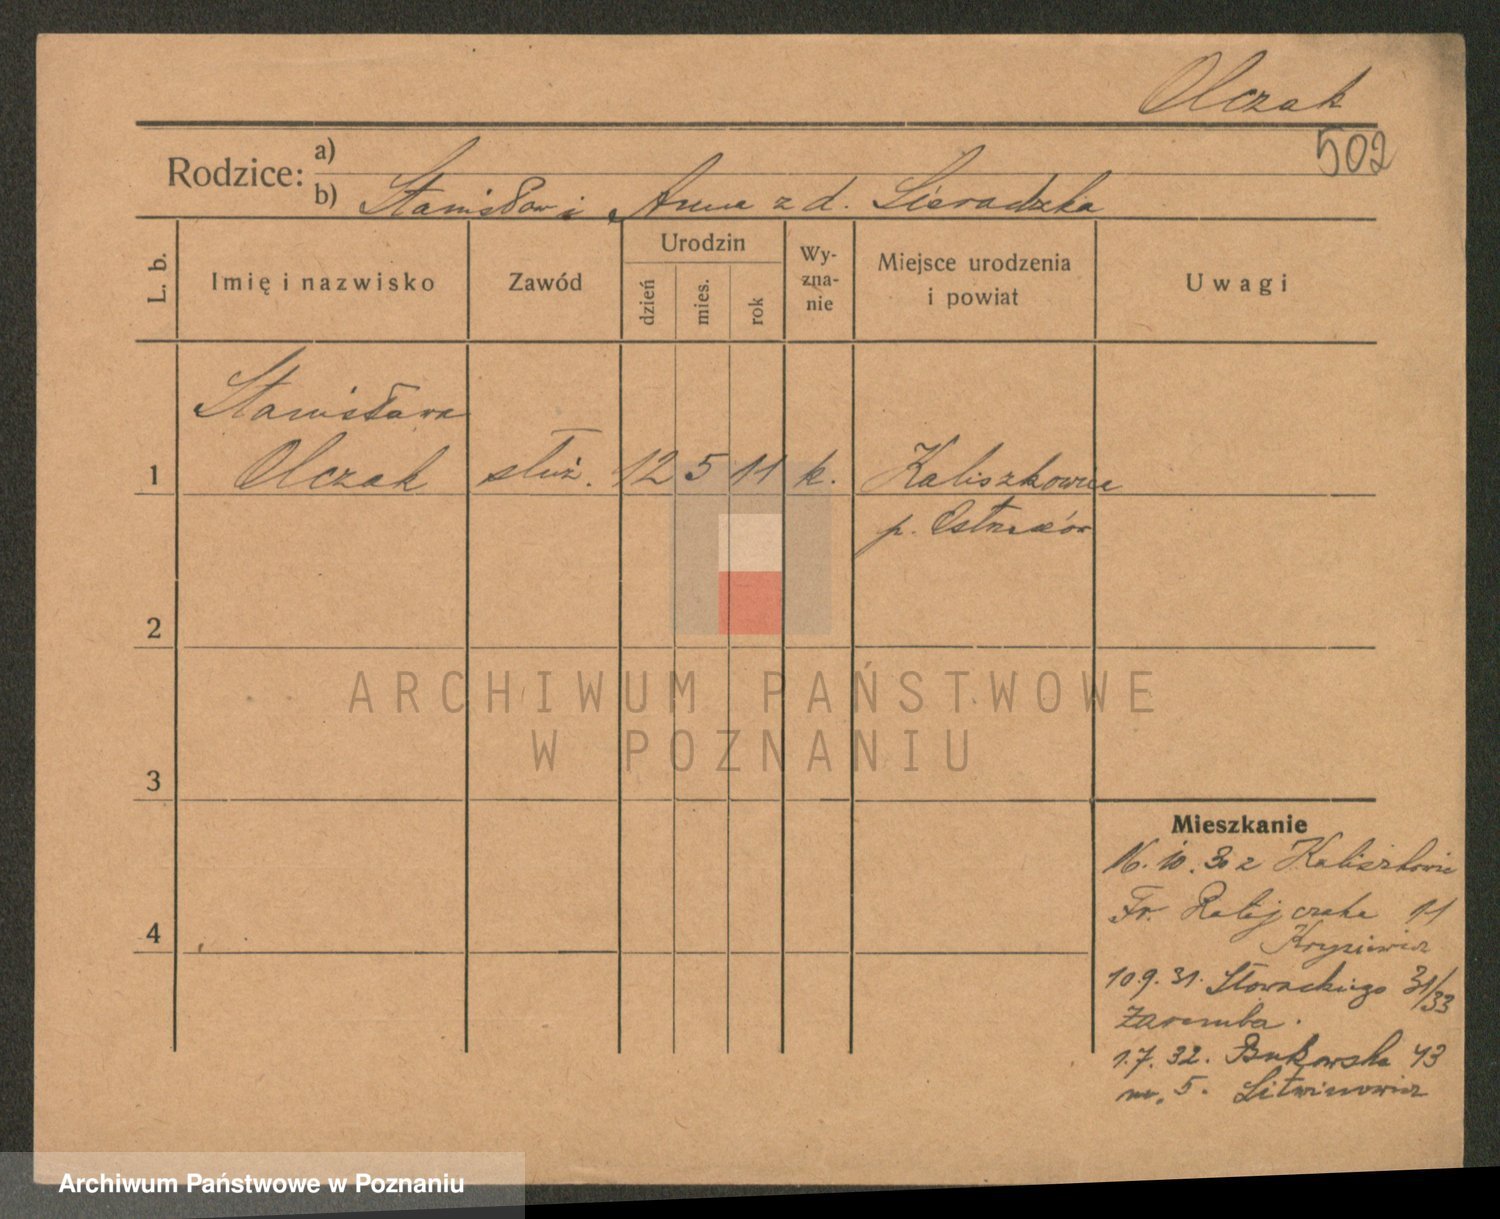 Olczak
502
Rodzice:
a)
b) Stanisław i Anna z d. Sieradzka
L. b.
Imię i nazwisko
Zawód
Urodzin
dzień
mies.
rok
Wy-
zna-
nie
Miejsce urodzenia
i powiat
Uwagi
Stanisława
1 Olczak służ. 12 5 11 k. Kaliszkowice
p. Ostrzeszów
2
ARCHIWUM PAŃSTWOWE
W POZNANIU
3
Mieszkanie
16.10.30 z Kaliszkowic
Fr. Ratajczaka 11
Krysiewicz
4
10.9.31. Słowackiego 31/33
Zaremba.
1.7.32. Bukowska 43
m. 5. Litwinowicz
Archiwum Państwowe w Poznaniu